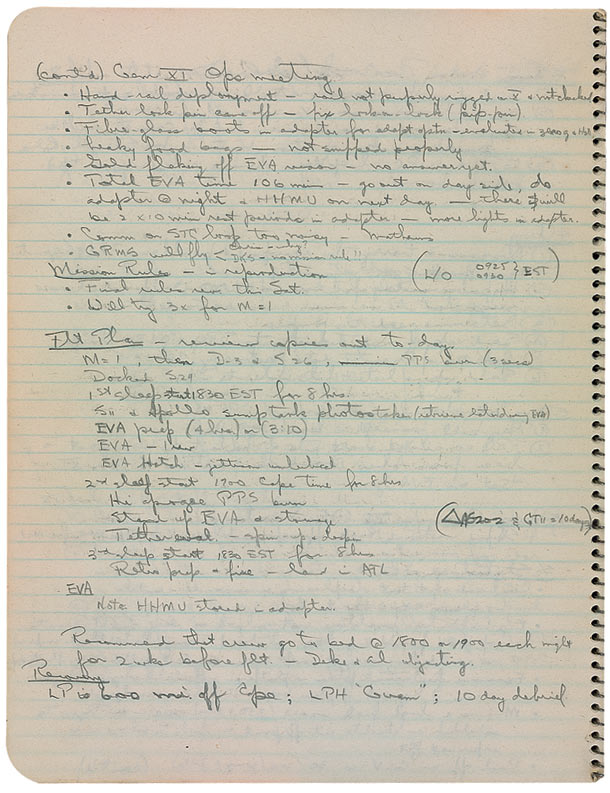 (cont'd) Gem XI Ops meeting
• Hand-rail deployment – rail not properly rigged on X & not checked
• Tether lock pin came off – fix lock-on-lock (pip-pin)
• Fibre-glass boots in adapter for adapt optn – evaluates – 3800g &
• Leaky food bags — not snipped properly
• Gold flaking off EVA visor – no answer yet.
• Total EVA time 106 min – go out on day side, do
adapter @ night & HHMU on next day. – there will
be 2 x 10 min rest periods in adapter – more lights in adapter.
• Comm on STC loop too noisy – Mathews
• GRMS will fly < DKS – no mission rule!!
Mission Rules – in reproduction
(L/O 0925 0930 } EST)
• Final rules rev this Sat.
• Will try 3x for M=1
Flt Plan – review copies out to-day.
M=1, then D-3 & S-26, PPS burn (3 secs)
Docked S29
1st sleep start 1830 EST for 8 hrs.
S11 & Apollo sump tank photos taken (retrieve before during EVA)
EVA prep (4 hrs) or (3:10)
EVA – 1 rev
EVA Hatch – jettison umbilical
2nd sleep start 1900 Cape time for 8 hrs
Hi apogee PPS burn
Stand up EVA & storage
(Δ AS202 & GT11 = 10 days)
Tether eval. – spin-up & despin
3rd sleep start 1830 EST for 8 hrs
Retro prep & fire – land in ATL
EVA
Note HHMU stored in adapter.
Recommend that crew go to bed @ 1800 or 1900 each night
for 2 wks before flt. – Deke & Al digesting.
Recovery
LP is 600 mi. off Cape; LPH "Guam"; 10 day debrief.